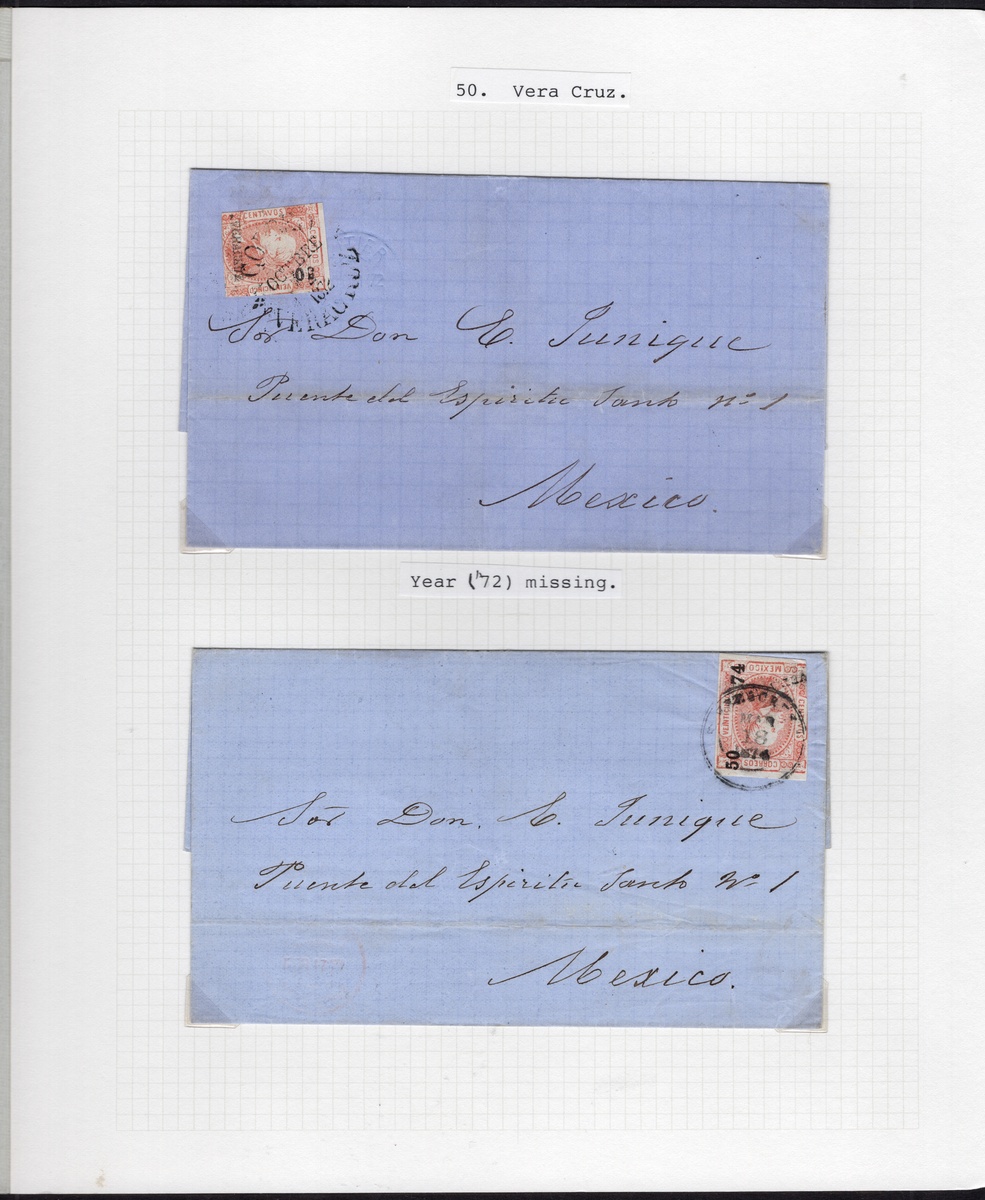 50. Vera Cruz.
CENTAVOS
OCTUBRE
03
VERACRUZ
Sor. Don E. Junique
Puente del Espiritu Santo No 1
Mexico.
Year ('72) missing.
74
MEXICO
MAR
18
50
CORREOS
Sor Don. E. Junique
Puente del Espiritu Santo No 1
Mexico.